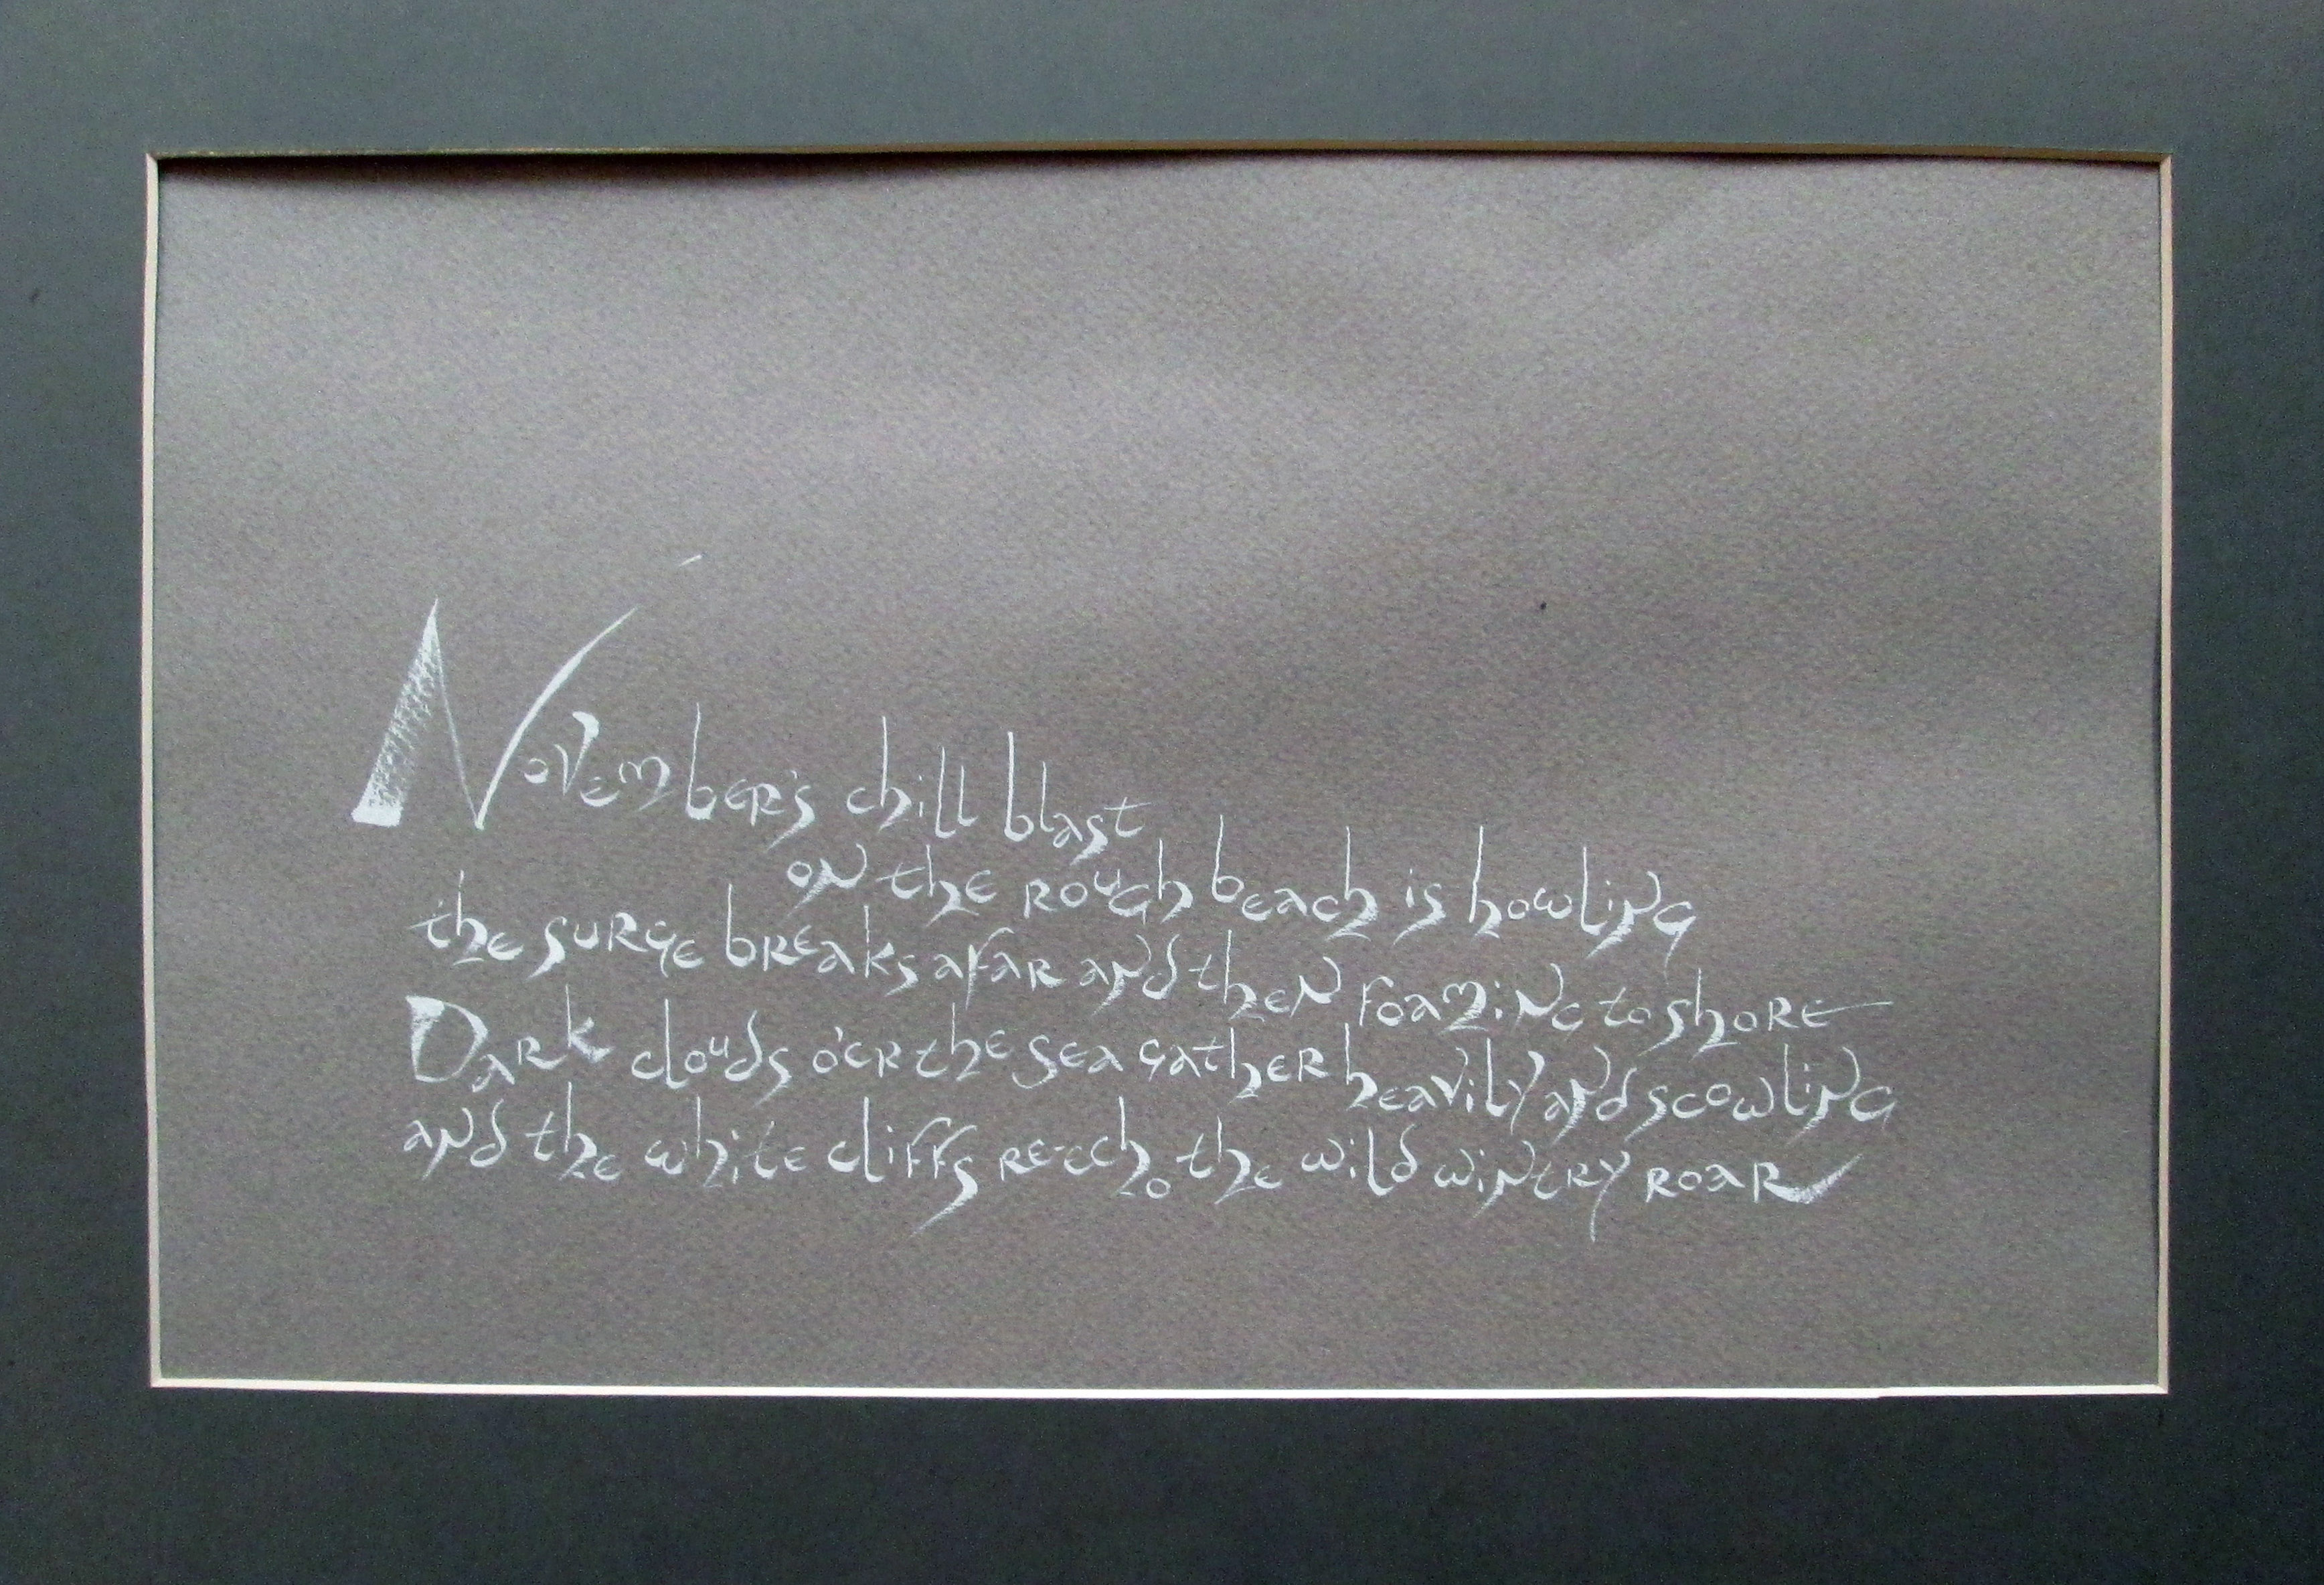 November's chill blast
on the rough beach is howling
the surge breaks afar and then foaming to shore
Dark clouds o'er the sea gather heavily and scowling
and the white cliffs re-echo the wild wintry roar